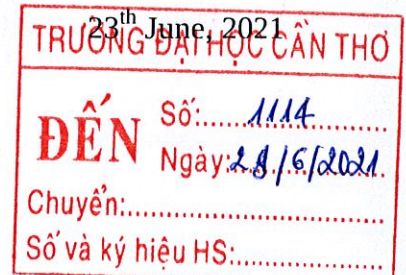 23th June, 2021
TRƯỜNG ĐẠI HỌC CẦN THƠ
ĐẾN
Số:.......1114.................
Ngày:28/6/2021.
Chuyển:...............................
Số và ký hiệu HS:.................